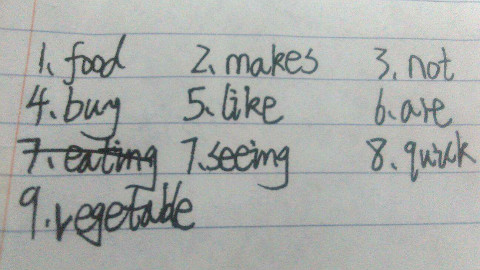 1. food 2. makes 3. not
4. buy 5. like 6. are
7. eating 7. seeing 8. quick
9. vegetable